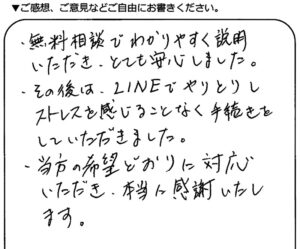 ▼ご感想、ご意見などご自由にお書きください。
・無料相談でわかりやすく説明
いただき、とても安心しました。
・その後は、LINEでやりとりし
ストレスを感じることなく手続きを
していただきました。
・当方の希望どおりに対応
いただき、本当に感謝いたし
ます。